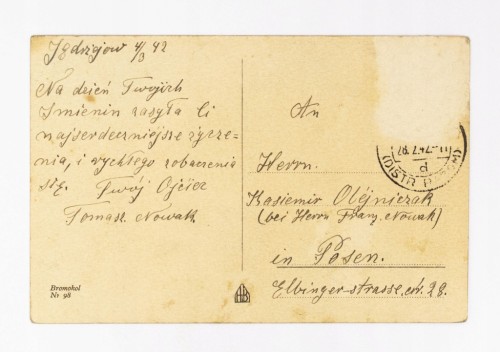 Jędrzejow 4/3 42
Na dzień Twojich
Imienin zasyła Ci
najserdeczniejsze życze-
nia, i rychłego zobaczenia
się. Twój Ojciec
Tomasz Nowak
Bromokol
Nr 98
An
Herrn.
Kasiemir Olejniczak
(bei Herrn Franz. Nowak)
in Posen.
Elbinger-strasse. nr. 28.